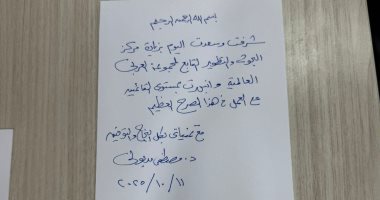 بسم الله الرحمن الرحيم
شرفت وسعدت اليوم بزيارة مركز
البحوث والتطوير التابع لمجموعة العربى
العالمية وانبهرت بمستوى القائمين
مع العمل فى هذا الصرح العظيم
مع تمنياتى بكل النجاح والتوفيق
د. مصطفى مدبولى
٢٠٢٥/١٠/١١